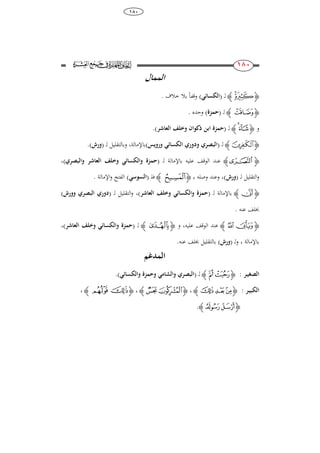 ١٨٠
١٨٠
الممال
﴿كَثِيرٗا﴾ لـ (الكسائي) وقفاً بلا خلاف .
﴿وَضَاقَتۡ﴾ لـ (حمزة) وحده .
و ﴿شَآءَ﴾ لـ (حمزة ابن ذكوان وخلف العاشر).
﴿ٱلۡكَٰفِرِينَ﴾ لـ (البصري ودوري الكسائي ورويس)بالإمالة، وبالتقليل لـ (ورش).
﴿ٱلنَّصَٰرَى﴾ عند الوقف عليه بالإمالة لـ (حمزة والكسائي وخلف العاشر والبصري)،
والتقليل لـ (ورش)، وعند وصله ، ﴿ٱلۡمَسِيحُ﴾ فلـ (السوسي) الفتح والإمالة .
﴿أَنَّىٰ﴾ بالإمالة لـ (حمزة والكسائي وخلف العاشر)، والتقليل لـ (دوري البصري وورش)
بخلف عنه .
﴿وَيَأۡبَى ٱللَّهُ﴾ عند الوقف عليه، و ﴿بِٱلۡهُدَىٰ﴾ لـ (حمزة والكسائي وخلف العاشر)،
بالإمالة ، ولـ (ورش) بالتقليل بخلف عنه.
المدغم
الصغير : ﴿رَحُبَتۡ ثُمَّ﴾ لـ (البصري والشامي وحمزة والكسائي).
الكبير : ﴿مِنۢ بَعۡدِ ذَٰلِكَ﴾ ، ﴿ٱلۡمُشۡرِكُونَ نَجَسٞ﴾ ، ﴿ذَٰلِكَ قَوۡلُهُم﴾ ،
﴿أَرۡسَلَ رَسُولَهُۥ﴾.